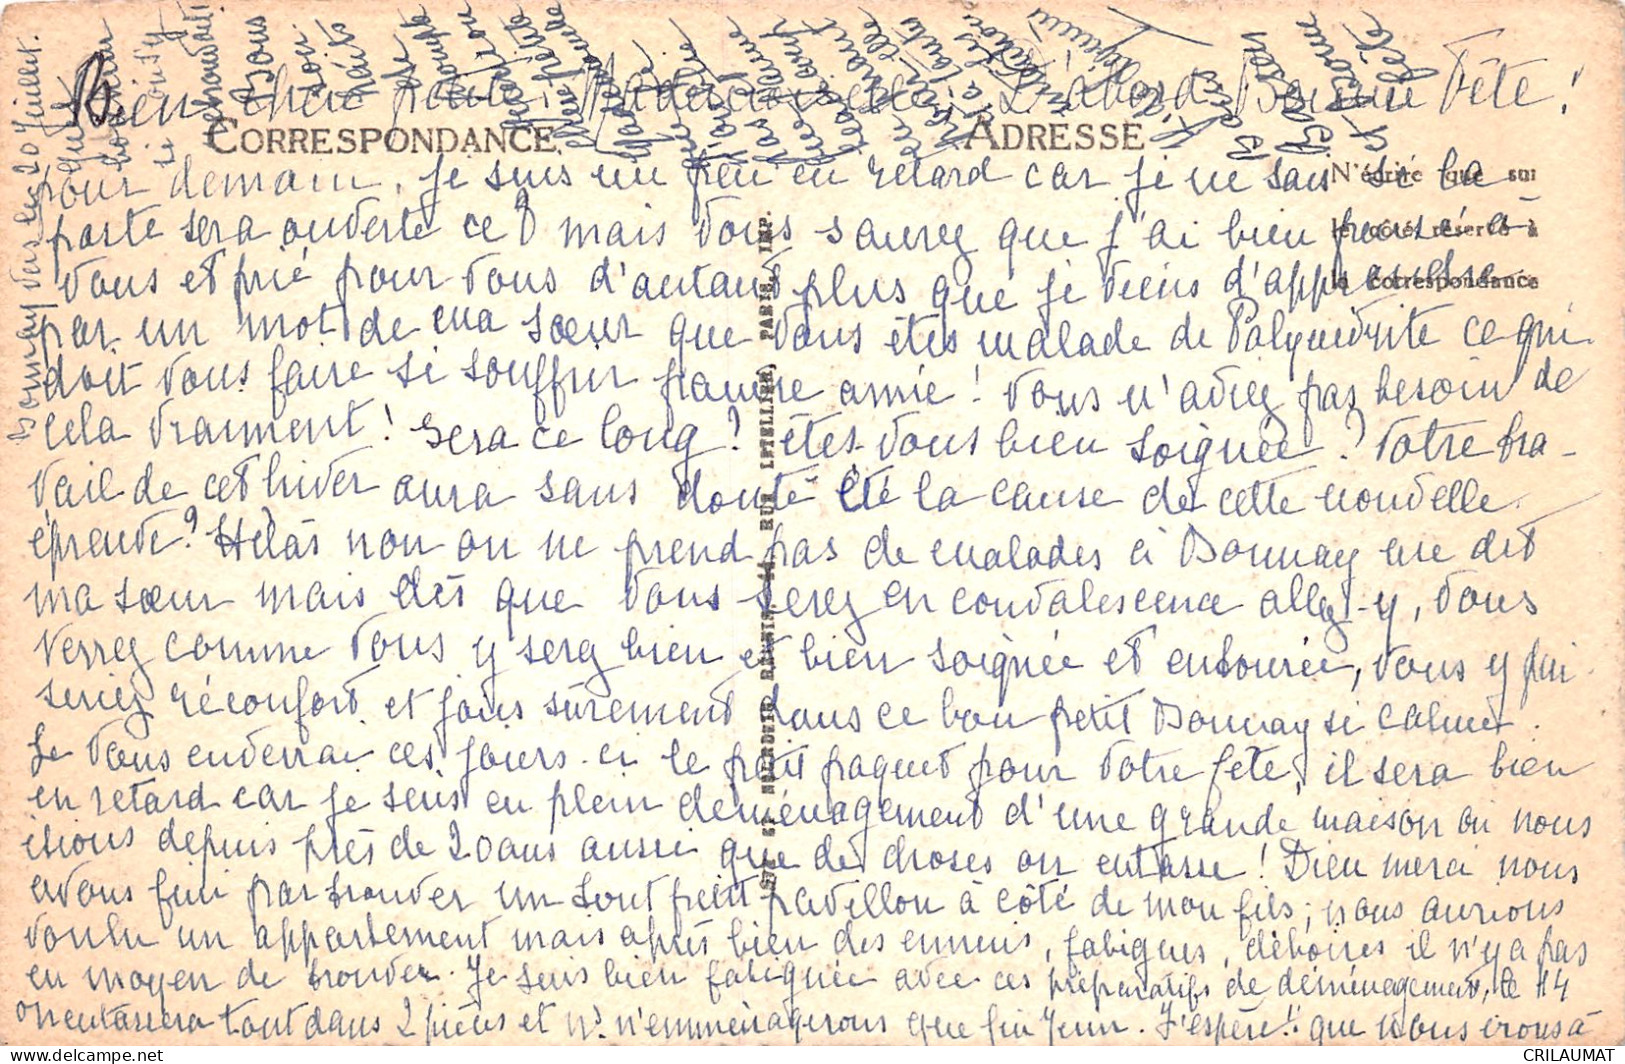 Bien chère petite Mademoiselle, D'abord Bonne Fête !
CORRESPONDANCE
ADRESSE
N'écrire que sur
le côté réservé à
la correspondance
pour demain, je suis un peu en retard car je ne sais si la
poste sera ouverte ce 8 mais vous saurez que j'ai bien pensé à
vous et prié pour vous d'autant plus que je viens d'apprendre
par un mot de ma sœur que vous êtes malade de Polynévrite ce qui
doit vous faire si souffrir pauvre amie ! Vous n'aviez pas besoin de
cela vraiment ! Sera ce long ? êtes-vous bien soignée ? Votre tra-
vail de cet hiver aura sans doute été la cause de cette nouvelle
épreuve ? Hélas non on ne prend pas de malades à Bonnay me dit
ma sœur mais dès que vous serez en convalescence allez-y, vous
verrez comme vous y serez bien et bien soignée et entourée, vous y pui-
seriez réconfort et joies sûrement dans ce bon petit Bonnay si calme.
Je vous enverrai ces jours-ci le petit paquet pour votre fête, il sera bien
en retard car je suis en plein déménagement d'une grande maison où nous
étions depuis près de 20 ans aussi que de choses on entasse ! Dieu merci nous
avons fini par trouver un tout petit pavillon à côté de mon fils ; nous aurions
voulu un appartement mais après bien des ennuis, fatigues, déboires il n'y a pas
eu moyen de trouver. Je suis bien fatiguée avec ces préparatifs de déménagement, le 14
on entassera tout dans 2 pièces et ns n'emménagerons que fin Juin. J'espère !! que nous irons à
Bonnay vers les 20 Juillet.
STÉ ET NEURDEIN RÉUNIS, 44, RUE LETELLIER, PARIS, IMP.
CRILAUMAT